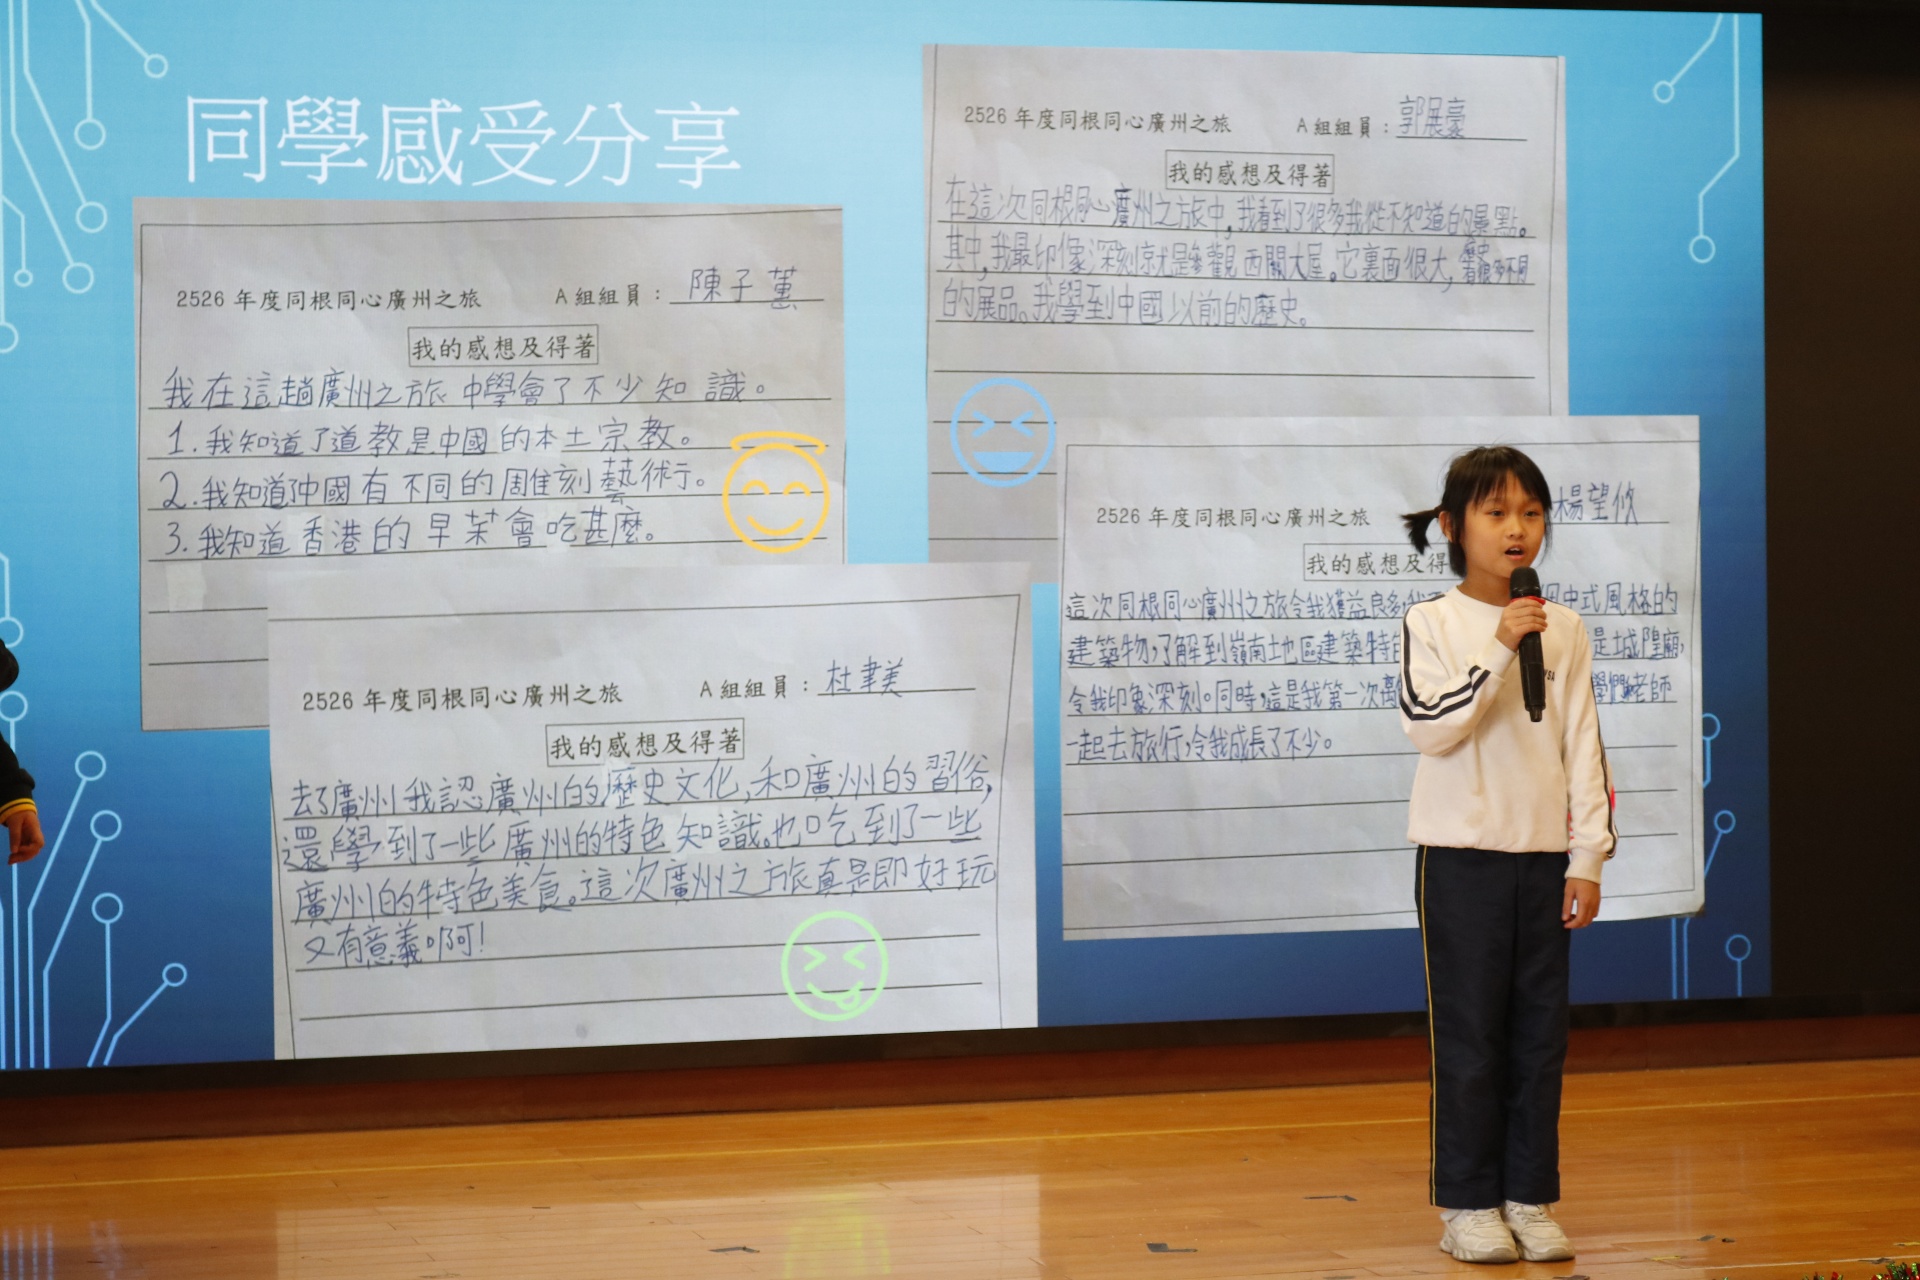 同學感受分享
2526 年度同根同心廣州之旅 A組組員：陳子蕙
我的感想及得著
我在這趟廣州之旅中學會了不少知識。
1.我知道了道教是中國的本土宗教。
2.我知道中國有不同的雕刻藝術。
3.我知道香港的早茶會吃甚麼。
2526 年度同根同心廣州之旅 A組組員：郭展豪
我的感想及得著
在這次同根同心廣州之旅中,我看到了很多我從不知道的景點。
其中,我最印像深刻就是參觀西關大屋。它裏面很大,歷史
有很多不同
的展品。我學到中國以前的歷史。
2526 年度同根同心廣州之旅 A組組員：杜聿美
我的感想及得著
去了廣州我認廣州的歷史文化,和廣州的習俗,
還學到了一些廣州的特色知識。也吃到了一些
廣州的特色美食。這次廣州之旅真是即好玩
又有意義啊!
2526 年度同根同心廣州之旅 楊望攸
我的感想及得
這次同根同心廣州之旅令我獲益良多,我 中式風格的
建築物,了解到嶺南地區建築特 是城隍廟,
令我印象深刻。同時,這是我第一次離 學們和老師
一起去旅行,令我成長了不少。